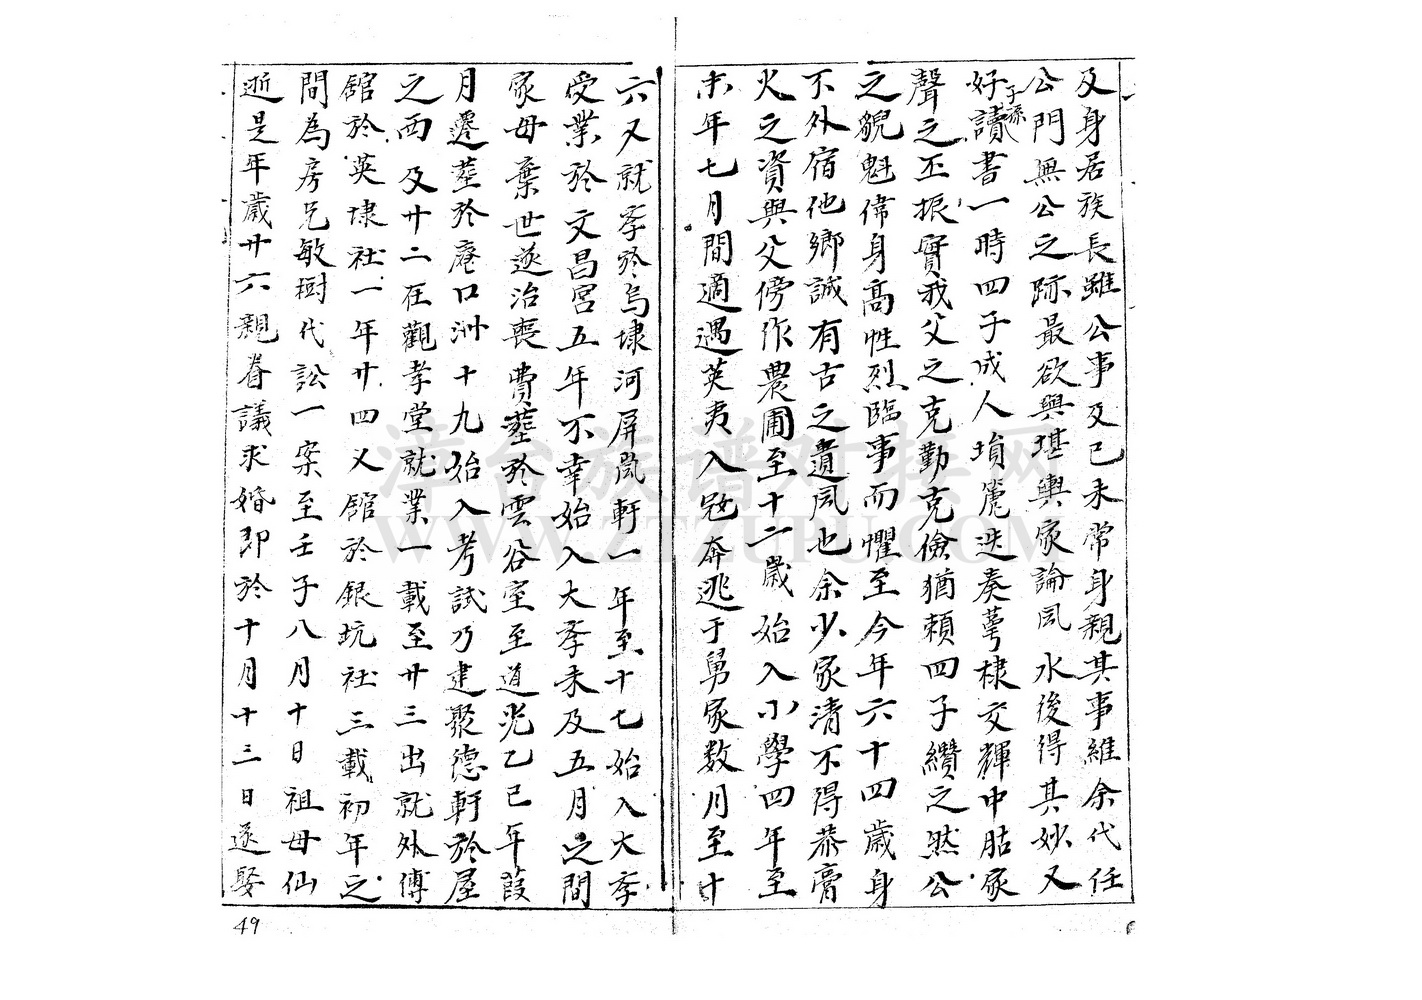 及身居族長雖公事及己未常身親其事維余代任
公門無公之跡最欲與堪輿家論風水後得其妙又
好子孫讀書一時四子成人塤篪迭奏萼棣交輝中姑家
聲之丕振實我父之克勤克儉猶賴四子纘之然公
之貌魁偉身高性烈臨事而懼至今年六十四歲身
不外宿他鄉誠有古之遺風也余少家清不得恭膏
火之資與父傍作農圃至十二歲始入小學四年至
未年七月間適遇英夷入寇奔逃于舅家数月至十
六又就孝於烏埭河屏風軒一年至十七始入大孝
受業於文昌宮五年不幸始入大孝未及五月之間
家母棄世遂治喪費塟於雲谷室至道光乙巳年葭
月遷塟於庵口洲十九始入考試乃建聚德軒於屋
之西及廿二在觀孝堂就業一載至廿三出就外傅
舘於英埭社一年廿四又舘於銀坑社三載初年之
間為房兄敏樹代訟一案至壬子八月十日祖母仙
逝是年歲廿六親眷議求婚即於十月十三日遂娶
49
漳台族谱对接网
WWW.ZTZUPU.COM